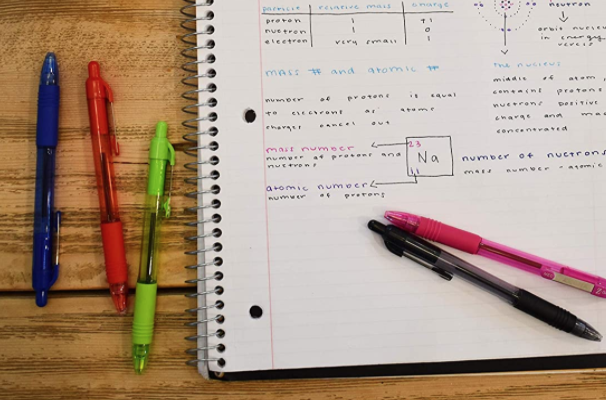 particle relative mass charge
proton 1 +1
nuetron 1 0
electron very small 1
neutron
orbit nucleus
in energy
mass # and atomic #
number of protons is equal
to electrons as atoms
charges cancel out
the nucleus
middle of atom
contains protons
nuetrons positive
charge and
concentrated
mass number
number of protons and
nuetrons
23
Na
11
number of nuetrons
mass number - atomic
atomic number
number of protons